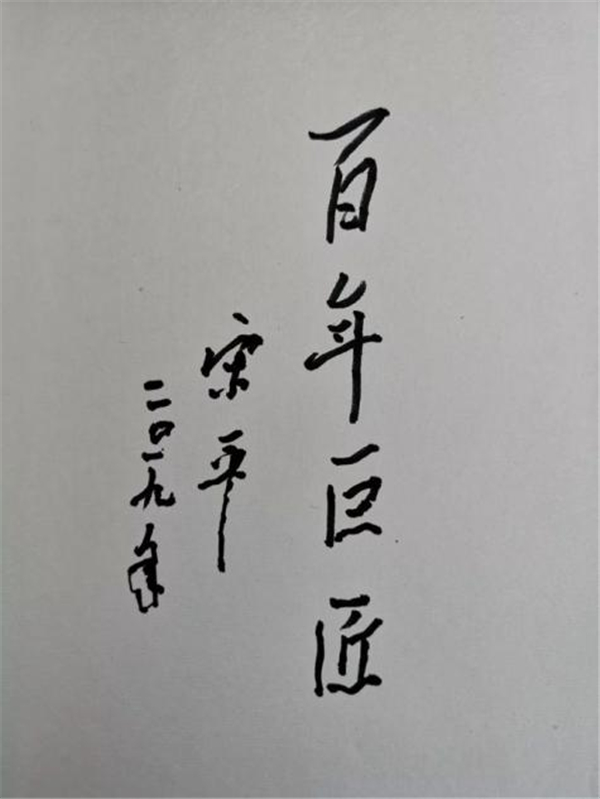 百年巨匠
宋平
二〇一九年